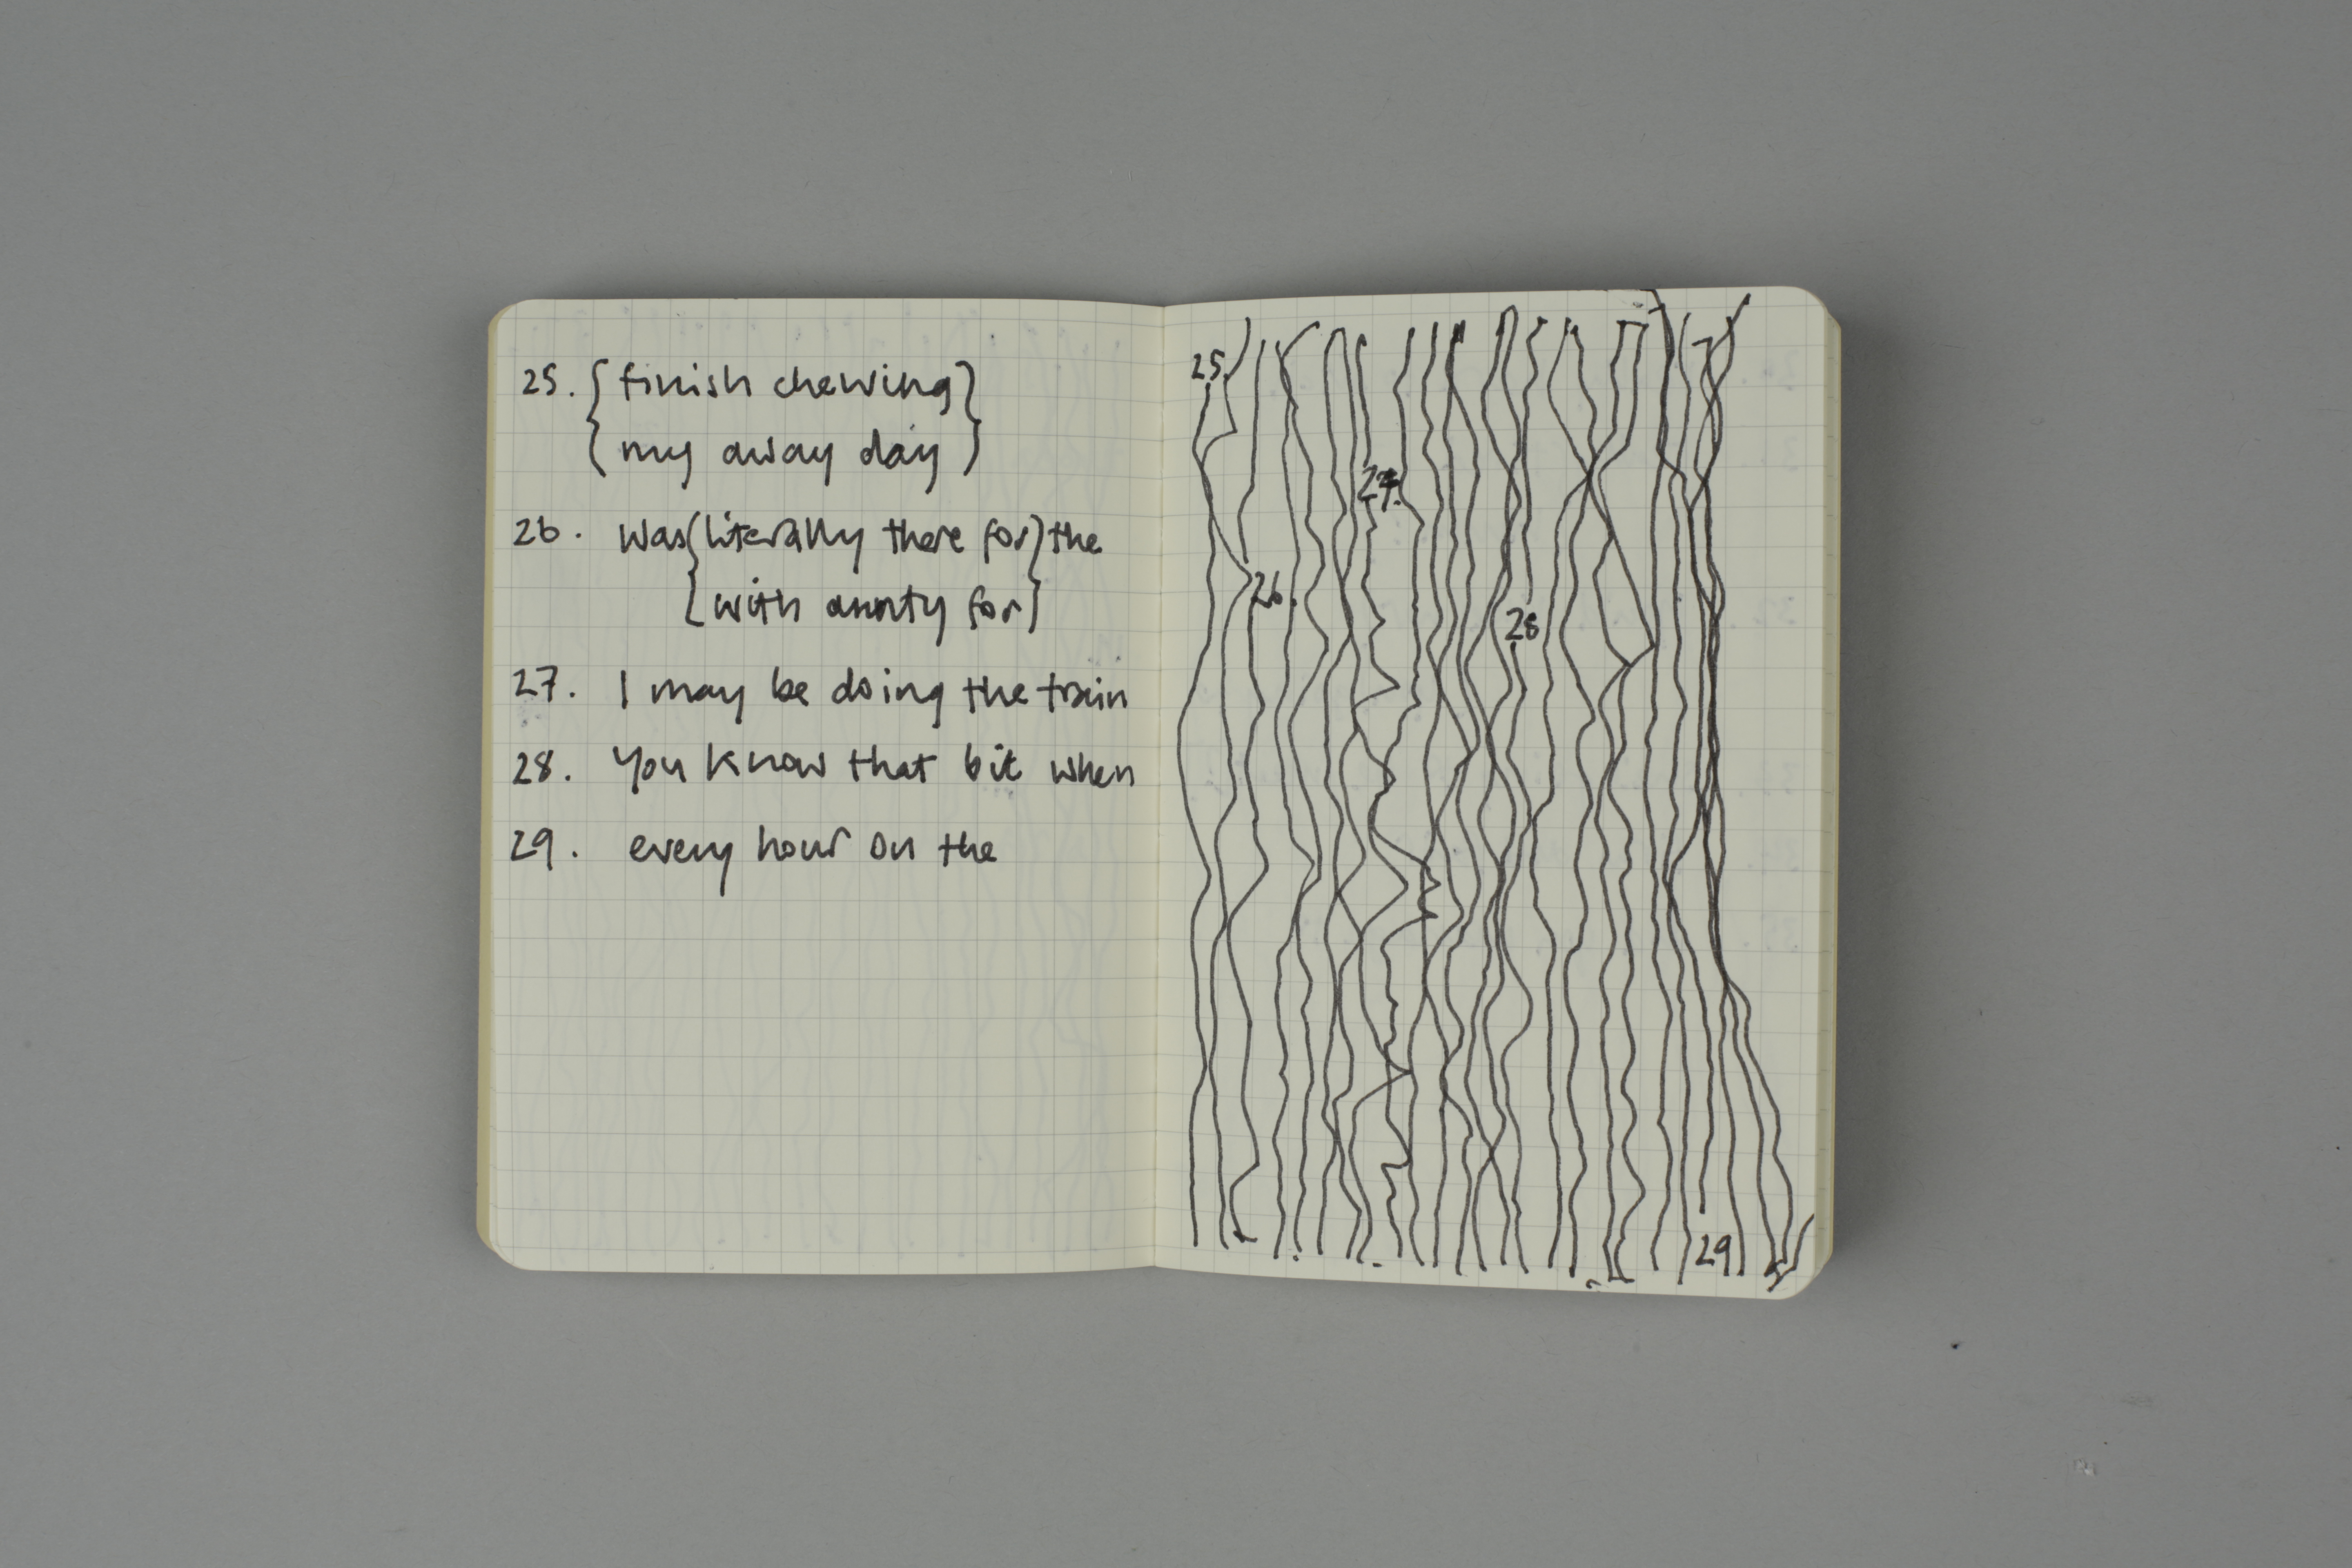 25. { finish chewing }
{ my away day }
26. was { literally there for } the
{ with aunty for }
27. I may be doing the train
28. You know that bit when
29. every hour on the
25.
27.
26.
28
29